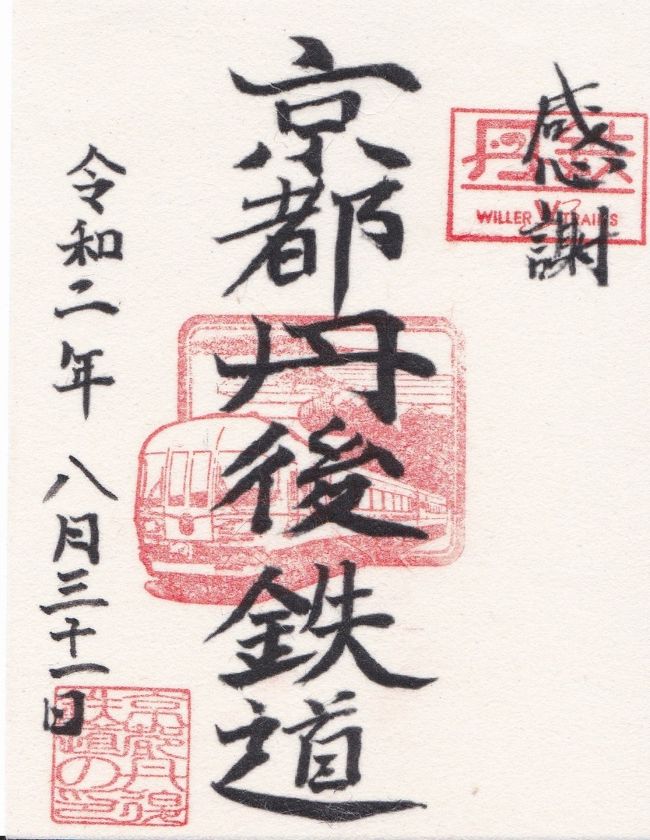 感謝
丹鉄
WILLER TRAINS
京都丹後鉄道
令和二年 八月三十一日
京都丹後
鉄道の印